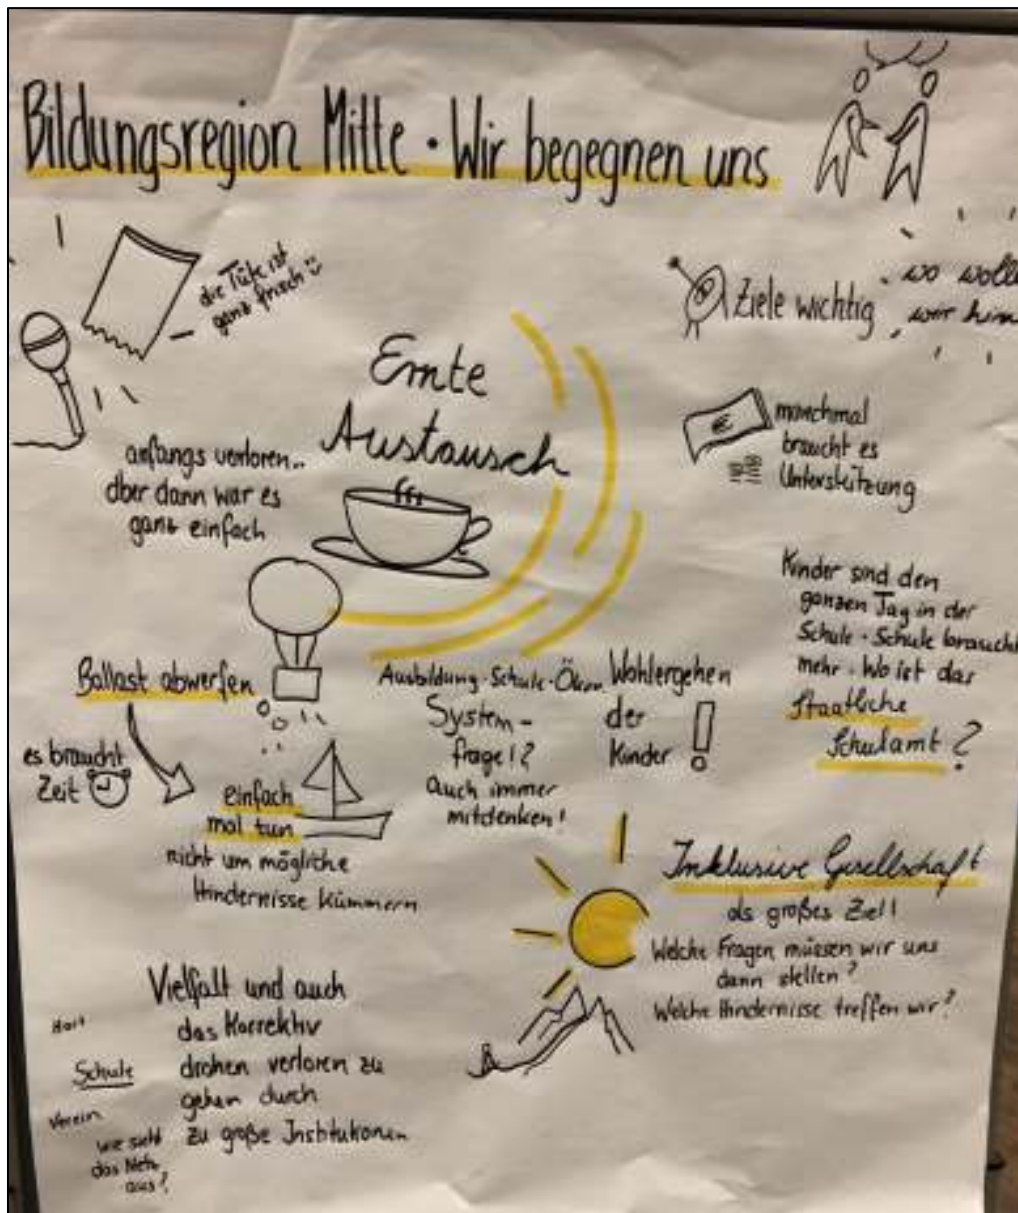 Bildungsregion Mitte · Wir begegnen uns
die Tüte ist
ganz frisch
Ziele wichtig
wo wolle
wir hin
Ernte
Austausch
€
manchmal
braucht es
Unterstützung
anfangs verloren..
aber dann war es
ganz einfach
Kinder sind den
ganzen Tag in der
Schule · Schule braucht
mehr · Wo ist das
Staatliche
Schulamt?
Ballast abwerfen
es braucht
Zeit
einfach
mal tun
nicht um mögliche
Hindernisse kümmern
Ausbildung · Schule ·
System-
frage!?
auch immer
mitdenken!
Wohlergehen
der
Kinder !
Inklusive Gesellschaft
als großes Ziel!
Welche Fragen müssen wir uns
dann stellen?
Welche Hindernisse treffen wir?
Vielfalt und auch
das Korrektiv
drohen verloren zu
gehen durch
zu große Institutionen
Hort
Schule
Verein
wie sieht
das Netz
aus?